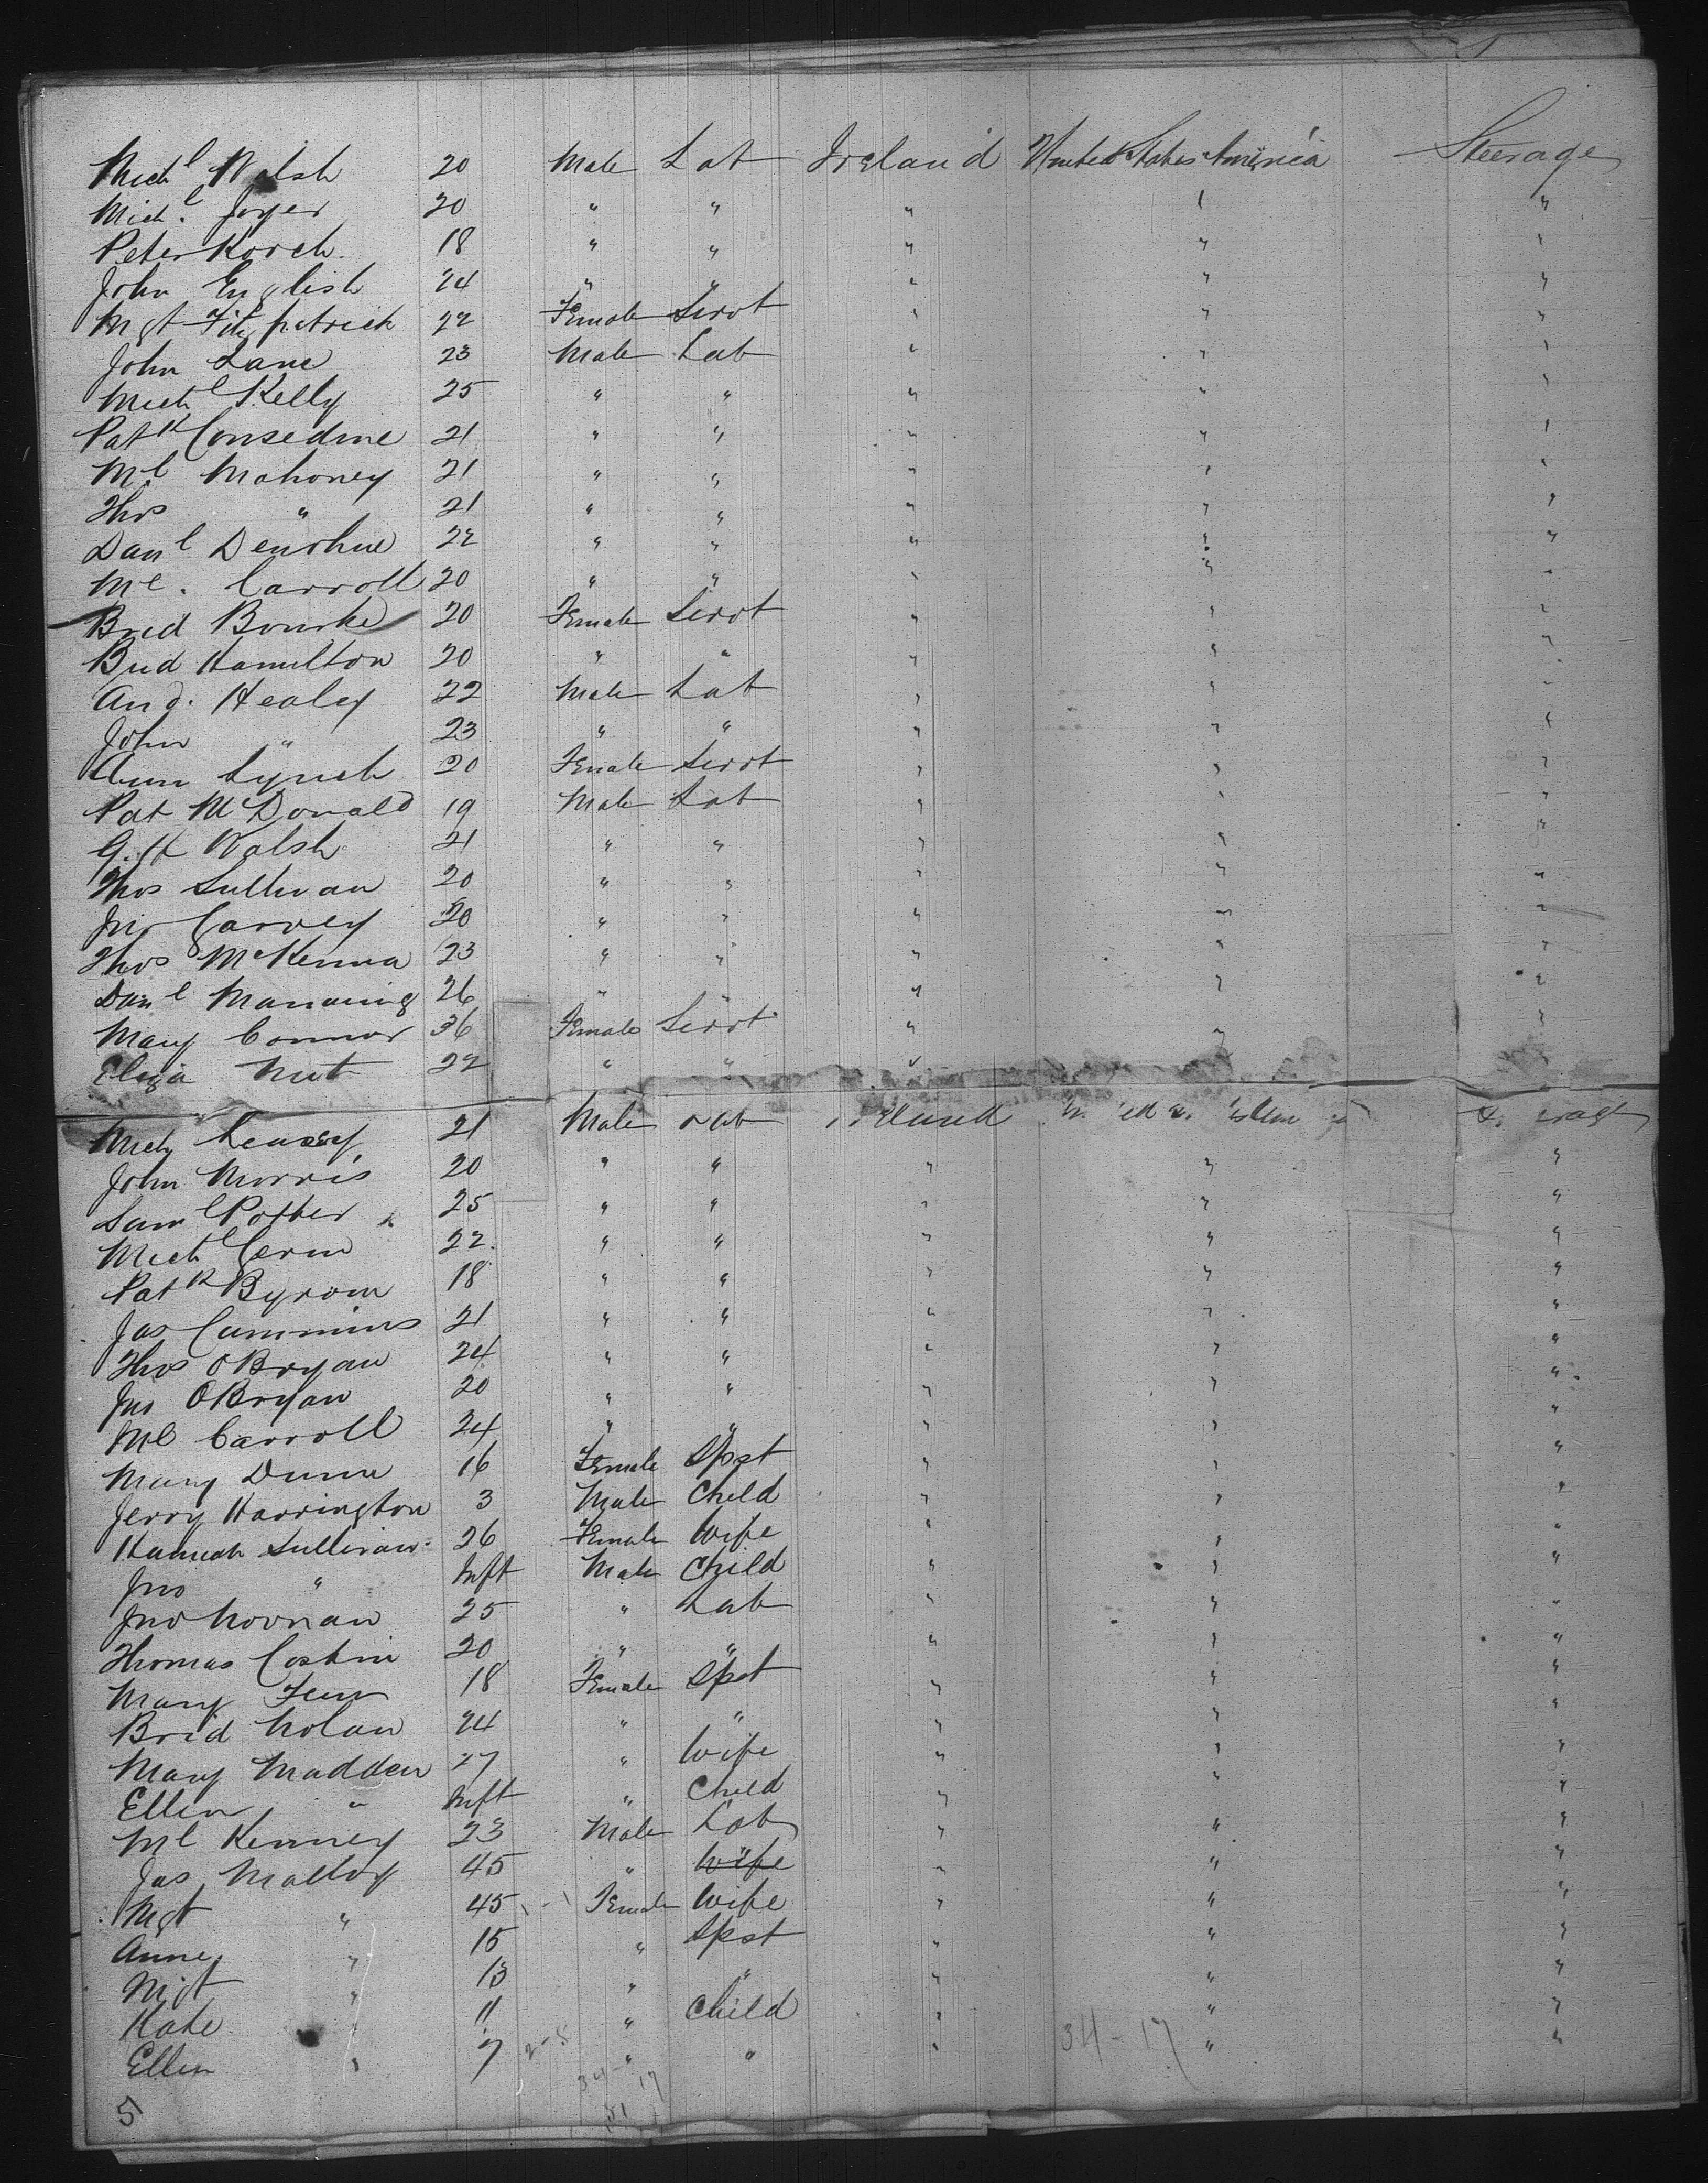 Mich^l Walsh 20 Male Lab Ireland United States America Steerage
Mich^l Joyer 20 " " " " "
Peter Korch 18 " " " " "
John English 24 " " " " "
Mgt Fitzpatrick 22 Female Servt " " "
John Lane 23 Male Lab " " "
Mich^l Kelly 25 " " " " "
Pat^k Consedine 21 " " " " "
Ml Mahoney 21 " " " " "
Thos " 21 " " " " "
Dan^l Donohue 22 " " " " "
Ml. Carroll 20 " " " " "
Brid Bourke 20 Female Servt " " "
Brid Hamilton 20 " " " " "
And. Healey 22 Male Lab " " "
John " 23 " " " " "
Ann Lynch 20 Female Servt " " "
Pat McDonald 19 Male Lab " " "
G. H Walsh 21 " " " " "
Thos Sullivan 20 " " " " "
Jno Garvey 20 " " " " "
Thos McKenna 23 " " " " "
Dan^l Manning 26 " " " " "
Mary Connor 36 Female Servt " " "
Eliza Nut 22 " " "
Mich 21 Male Lab Ireland
John Morris 20 " " " " "
Sam^l Potter 25 " " " " "
Mich^l 22 " " " " "
Pat^k Byrom 18 " " " " "
Jas Cummins 21 " " " " "
Thos OBryan 24 " " " " "
Jno OBryan 20 " " " " "
Ml Carroll 24 " " " " "
Mary Dunne 16 Female Spst " " "
Jerry Harrington 3 Male Child " " "
Hannah Sullivan 26 Female Wife " " "
Jno " Inft Male Child " " "
Jno Noonan 25 " Lab " " "
Thomas Costin 20 " " " " "
Mary 18 Female Spst " " "
Brid Nolan 24 " " " " "
Mary Madden 27 " Wife " " "
Ellen " Inft " Child " " "
Ml Kenney 23 Male Lab " " "
Jas Malloy 45 " Wife " " "
Mgt " 45 Female Wife " " "
Anne " 15 " Spst " " "
Mgt " 13 " " " " "
Kate " 11 " Child " " "
Ellen " 7 " " " " "
34-17
34
17
51
5